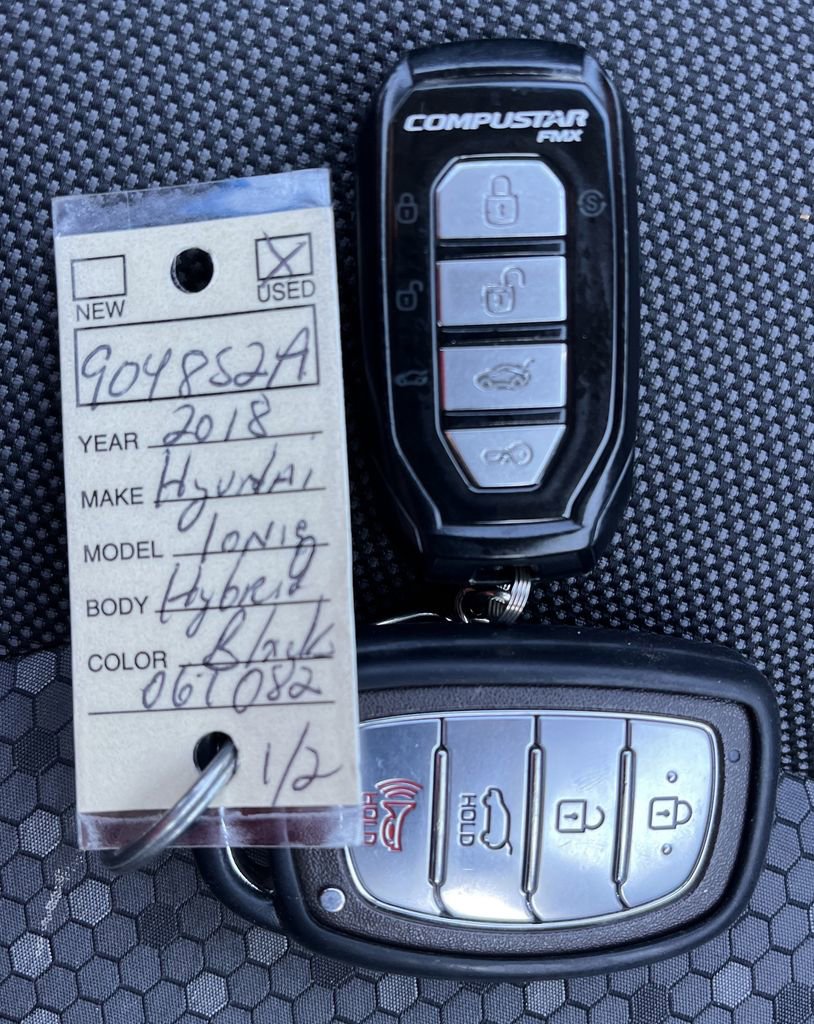 COMPUSTAR
FMX
NEW
USED
904852A
YEAR 2018
MAKE Hyundai
MODEL Ioniq
BODY Hybrid
COLOR Black
06T082
1/2
HOLD
HOLD